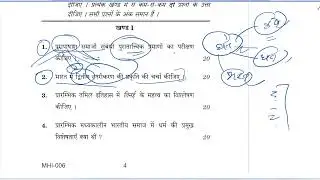 दीजिए । प्रत्येक खण्ड में से कम-से-कम दो प्रश्नों के उत्तर
दीजिए । सभी प्रश्नों के अंक समान हैं ।
खण्ड I
1. समाजों संबंधी पुरातात्त्विक प्रमाणों का परीक्षण
कीजिए । 20
2. भारत में द्वितीय नगरीकरण की प्रकृति की चर्चा कीजिए । 20
3. प्रारम्भिक तमिल इतिहास में तिनई के महत्त्व का विश्लेषण
कीजिए । 20
4. प्रारम्भिक मध्यकालीन भारतीय समाज में धर्म की प्रमुख
विशेषताएँ क्या थीं ? 20
MHI-006 4